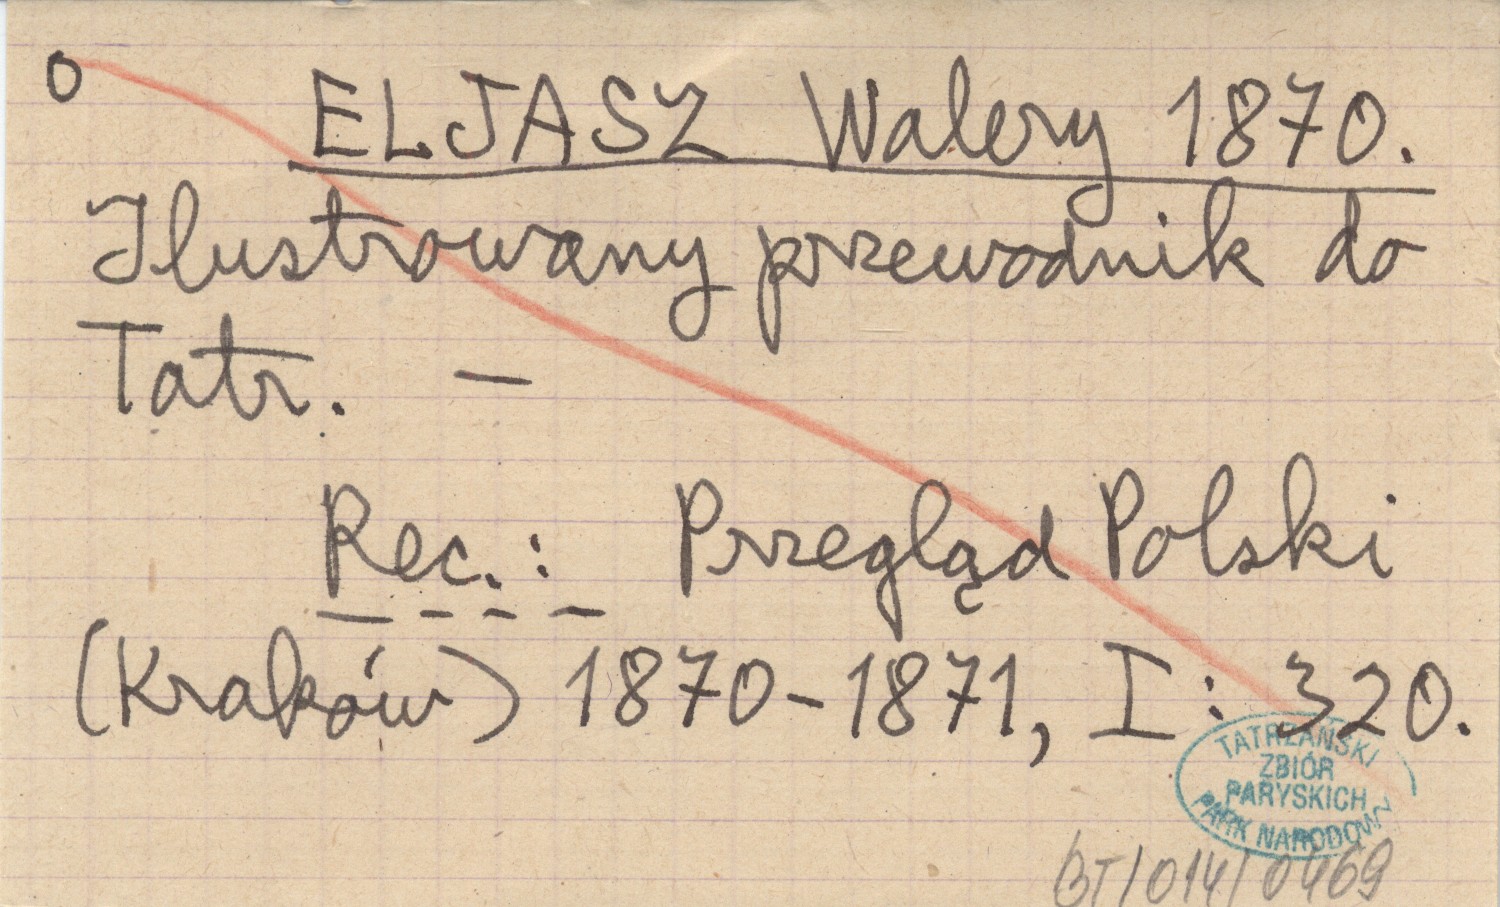 O ELJASZ Walery 1870.
Ilustrowany przewodnik do
Tatr. —
Rec.: Przegląd Polski
(Kraków) 1870-1871, I: 320.
TATRZAŃSKI
ZBIÓR
PARYSKICH
PARK NARODOWY
BT/014/0469